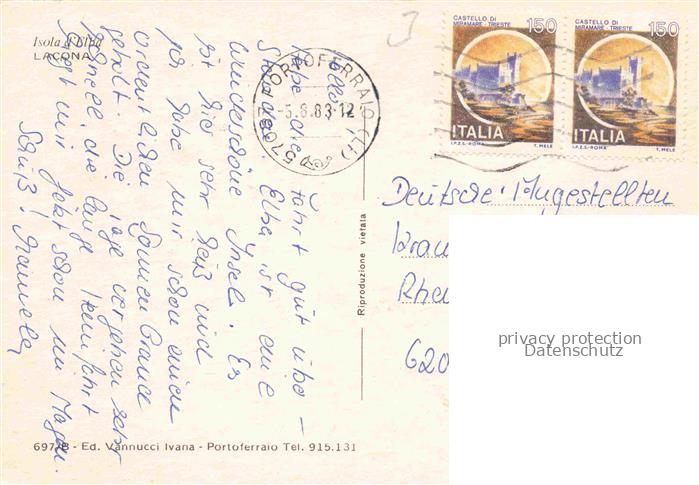 Isola d'Elba
LACONA
Hallo !
habe die Fahrt gut über-
standen. Elba ist eine
wunderschöne Insel. Es
ist hier sehr heiß und
ich habe mir schon einen
ordentlichen Sonnenbrand
geholt. Die Tage vergehen sehr
schnell, die lange Heimfahrt
liegt mir jetzt schon im Magen.
Gruß! Manuela
PORTOFERRAIO (LI)
-5.8.83-12
570
CASTELLO DI
MIRAMARE - TRIESTE
150
ITALIA
I.P.Z.S.-ROMA T. MELE
CASTELLO DI
MIRAMARE - TRIESTE
150
ITALIA
I.P.Z.S.-ROMA T. MELE
Riproduzione vietata
Deutsche Angestellten
Kran
Rhe
620
privacy protection
Datenschutz
697/B - Ed. Vannucci Ivana - Portoferraio Tel. 915.131